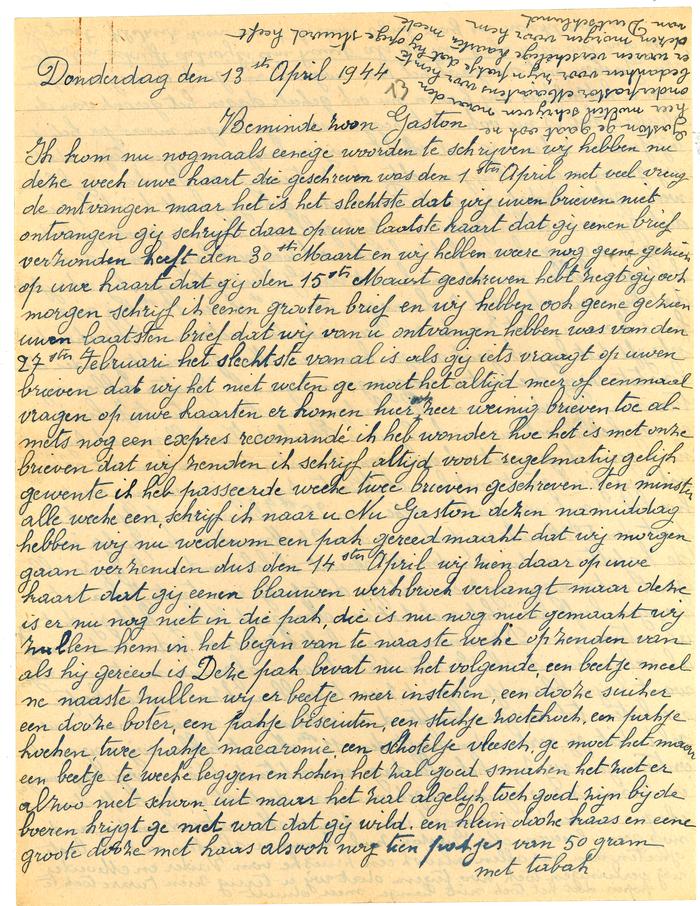 Donderdag den 13 sten April 1944
13
Beminde zoon Gaston
Ik kom nu nogmaals eeneige woorden te schrijven wij hebben nu
deze week uwe kaart die geschreven was den 1 sten April met veel vreug
de ontvangen maar het is het slechtste dat wij uwen brieven niet
ontvangen gij schrijft daar op uwe laatste kaart dat gij eenen brief
verzonden heeft den 30 sten Maart en wij hebben weere nog geene gezien
op uwe kaart dat gij den 15 sten Maart geschreven hebt zegt gij ook
morgen schrijf ik eenen grooten brief en wij hebben ook geene gezien
uwen laatsten brief dat wij van u ontvangen hebben was van den
27 sten Februari het slechtste van al is als gij iets vraagt op uwen
brieven dat wij het niet weten ge moet het altijd meer of eenmaal
vragen op uwe kaarten er komen hier zeer weinig brieven toe al-
mets nog een expres recomandé ik heb wonder hoe het is met onze
brieven dat wij zenden ik schrijf altijd voort regelmatig gelijk
gewente ik heb passeerde weeke twee brieven geschreven. ten minste
alle weeke een, schrijf ik naar u Nu Gaston dezen namiddag
hebben wij nu wederom een pak gereed maakt dat wij morgen
gaan verzenden dus den 14 sten April wij zien daar op uwe
kaart dat gij eenen blauwen werkbroek verlangt maar deze
is er nu nog niet in die pak, die is nu nog niet gemaakt wij
zullen hem in het begin van te naaste weke opzenden van
als hij geried is Deze pak bevat nu het volgende, een beetje meel
ne naaste zullen wij er beetje meer insteken, een dooze suiker
een dooze boter, een pakje biscuiten, een stukje zoetekoek, een pakje
koeken, twee pakje macaronie een schoteltje vleesch, ge moet het maar
een beetje te weeke leggen en koken het zal goed smaken het ziet er
alzoo niet schoon uit maar het zal algelijk toch goed zijn bij de
boeren krijgt ge niet wat dat gij wild. een klein dooze kaas en eene
groote dooze met kaas alsook nog tien pakjes van 50 gram
met tabak
Gaston ge gaat ook ne
keer moeten schrijven naar den
onderpastor Maertens voor hem te
bedanken voor zijn pakje dat hij opge
er waren verscheidige kaarten mede
dezen morgen voor hem
van Duitschland
stuurd heeft